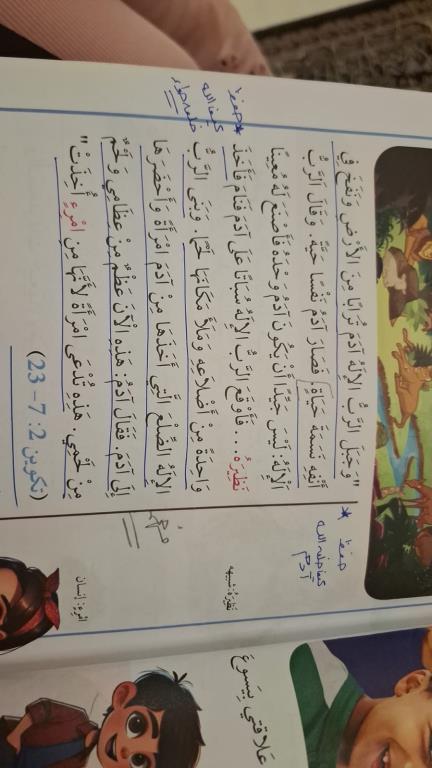 "وَجَبَلَ الرَّبُّ الإِلَهُ آدَمَ تُرَابًا مِنَ الأَرْضِ وَنَفَخَ فِي
أَنْفِهِ نَسَمَةَ حَيَاةٍ. فَصَارَ آدَمُ نَفْسًا حَيَّةً. وَقَالَ الرَّبُّ
الْإِلَهُ: لَيْسَ جَيِّدًا أَنْ يَكُونَ آدَمُ وَحْدَهُ فَأَصْنَعَ لَهُ مُعِينًا
نَظِيرَهُ... فَأَوْقَعَ الرَّبُّ الإِلَهُ سُبَاتًا عَلَى آدَمَ فَنَامَ فَأَخَذَ
وَاحِدَةً مِنْ أَضْلَاعِهِ وَمَلَأَ مَكَانَهَا لَحْمًا. وَبَنَى الرَّبُّ
الإِلَهُ الضِّلْعَ الَّتِي أَخَذَهَا مِنْ آدَمَ امْرَأَةً وَأَحْضَرَهَا
إِلَى آدَمَ. فَقَالَ آدَمُ: هَذِهِ الْآنَ عَظْمٌ مِنْ عِظَامِي وَلَحْمٌ
مِنْ لَحْمِي. هَذِهِ تُدْعَى امْرَأَةً لأَنَّهَا مِنِ امْرِءٍ أُخِذَتْ"
(تكوين 2: 7– 23)
* حفظ
كيف خلق الله
آدم
* حفظ
كيف الله
خلق حواء
مهم
نَظِيرَهُ: شبيهه
امْرِءٍ: إنسان
عَلاقتي بيَسوعَ